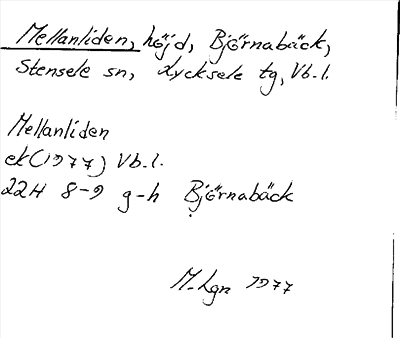 Mellanliden, höjd, Björnabäck,
Stensele sn, Lycksele tg, Vb.l.
Mellanliden
ek (1977) Vb.l.
22H 8-9 g-h Björnabäck
M. Lgn 1977